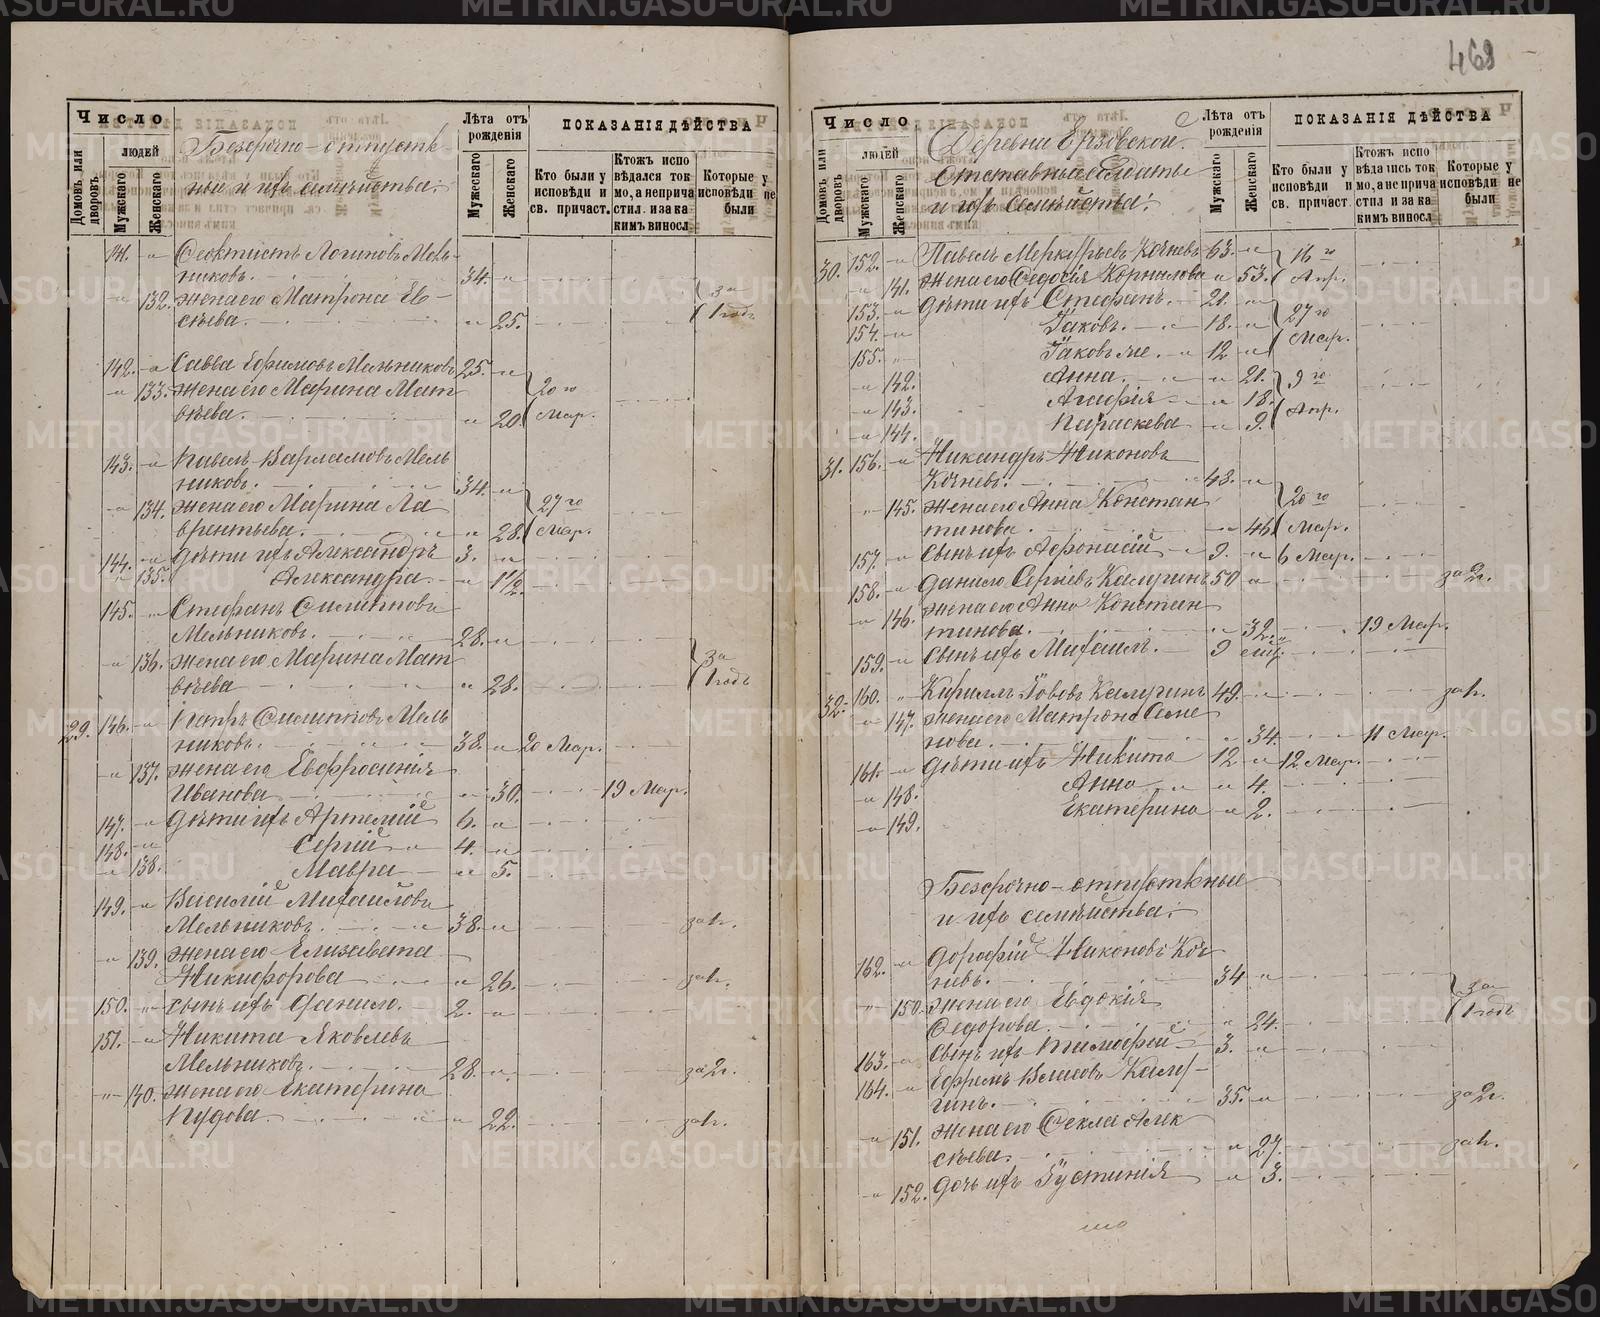 468
Число
людей
Домовъ или дворовъ.
Мужскаго
Женскаго
Безсрочно-отпуст-
ные и ихъ семейства:
Лѣта отъ рожденія
Мужескаго
Женскаго
ПОКАЗАНІЯ ДѢЙСТВА
Кто были у исповѣди и св. причаст.
Ктожъ испо вѣдался ток мо, а неприча стил и за ка кимъ виносл
Которые у исповѣди не были
141. -"- Феоктистъ Логиновъ Мель-
никовъ. 34. -"-
-"- 132. жена его Матрона Ев-
сѣева. -"- 25. за 1 годъ
142. -"- Савва Ефимовъ Мельниковъ 25. -"-
-"- 133. жена его Марина Мат
вѣева. -"- 20. 20 го Мар.
143. -"- Павелъ Варламовъ Мель
никовъ. 34. -"-
-"- 134. жена его Марина Ла
врентьева. -"- 28. 27 го Мар.
144. -"- Дѣти ихъ Александръ 3. -"-
-"- 135. Александра. -"- 1 1/2.
145. -"- Стефанъ Силиптовъ
Мельниковъ. 28. -"-
-"- 136. жена его Марина Мат
вѣева -"- 28. за 1 годъ
29. 146. -"- Петръ Силиптовъ Мель
никовъ. 38. -"- 20 Мар.
-"- 137. жена его Евфросинія
Иванова -"- 30. 19 Мар.
147. -"- Дѣти ихъ Артемій 6. -"-
148. -"- Сергій 4. -"-
-"- 138. Мавра -"- 5.
149. -"- Василій Михайловъ
Мельниковъ. 38. -"- за 1г.
-"- 139. жена его Елизавета
Никифорова -"- 26. за 1г.
150. -"- сынъ ихъ Данило. 2. -"-
151. -"- Никита Яковлевъ
Мельниковъ. 28. -"- за 2г.
-"- 140. жена его Екатерина
Иудова. -"- 22. за 1г.
Число
людей
Домовъ или дворовъ.
Мужскаго
Женскаго
Деревни Ерзовской.
Отставные солдаты
и ихъ семейства:
Лѣта отъ рожденія
Мужскаго
Женскаго
ПОКАЗАНІЯ ДѢЙСТВА
Кто были у исповѣди и св. причаст
Ктожъ испо вѣдались ток мо, а не прича стил и за ка кимъ виносл
Которые у исповѣди не были
30. 152. -"- Павелъ Меркурьевъ Кочневъ 63. -"- 16 го
-"- 141. жена его Федосія Корнилова -"- 53. Апр.
153. -"- Дѣти ихъ Стефанъ. 21. -"-
154. -"- Іаковъ. 18. -"- 27 го
155. -"- Іаковъ же. 12 -"- Мар.
-"- 142. Анна. -"- 21. 9 го
-"- 143. Агафія -"- 18. Апр.
-"- 144. Параскева -"- 9.
31. 156. -"- Никандръ Никоновъ
Кочневъ. 48. -"-
-"- 145. жена его Анна Констан
тинова. -"- 46 20 го Мар.
157. -"- сынъ ихъ Афонасій 9. -"- 6 Мар.
158. -"- Данило Сергіевъ Калугинъ 50 -"- за 2г.
-"- 146. жена его Анна Констан
тинова. -"- 32. 19 Мар.
159. -"- сынъ ихъ Михаилъ. 9
32. 160. -"- Кириллъ Іововъ Калугинъ 49. -"- за 1г.
-"- 147. жена его Матрона Семе
нова. -"- 34. 11 Мар.
161. -"- Дѣти ихъ Никита 12 -"- 12 Мар.
-"- 148. Анна -"- 4.
-"- 149. Екатерина -"- 2.
Безсрочно-отпускные
и ихъ семейства:
162. -"- Дорофій Никоновъ Коч-
невъ. 34 -"-
-"- 150. жена его Евдокія
Федорова. -"- 24. за 1 годъ
163. -"- сынъ ихъ Тимофей 3. -"-
164. -"- Ефремъ Власовъ Калу-
гинъ. 35. -"- за 2г.
-"- 151. жена его Фекла Алек
сѣева. -"- 27. за 1г.
-"- 152. дочь ихъ Іустинія -"- 3.
METRIKI.GASO-URAL.RU